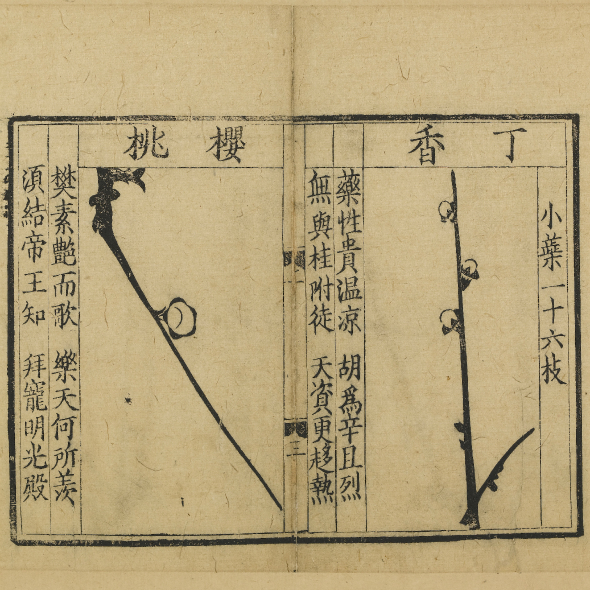 小蘂一十六枝
丁香
藥性貴温涼 胡爲辛且烈
無與桂附徒 天資更趍熱
一
三
櫻桃
樊素艷而歌 樂天何所羨
湏結帝王知 拜寵明光殿